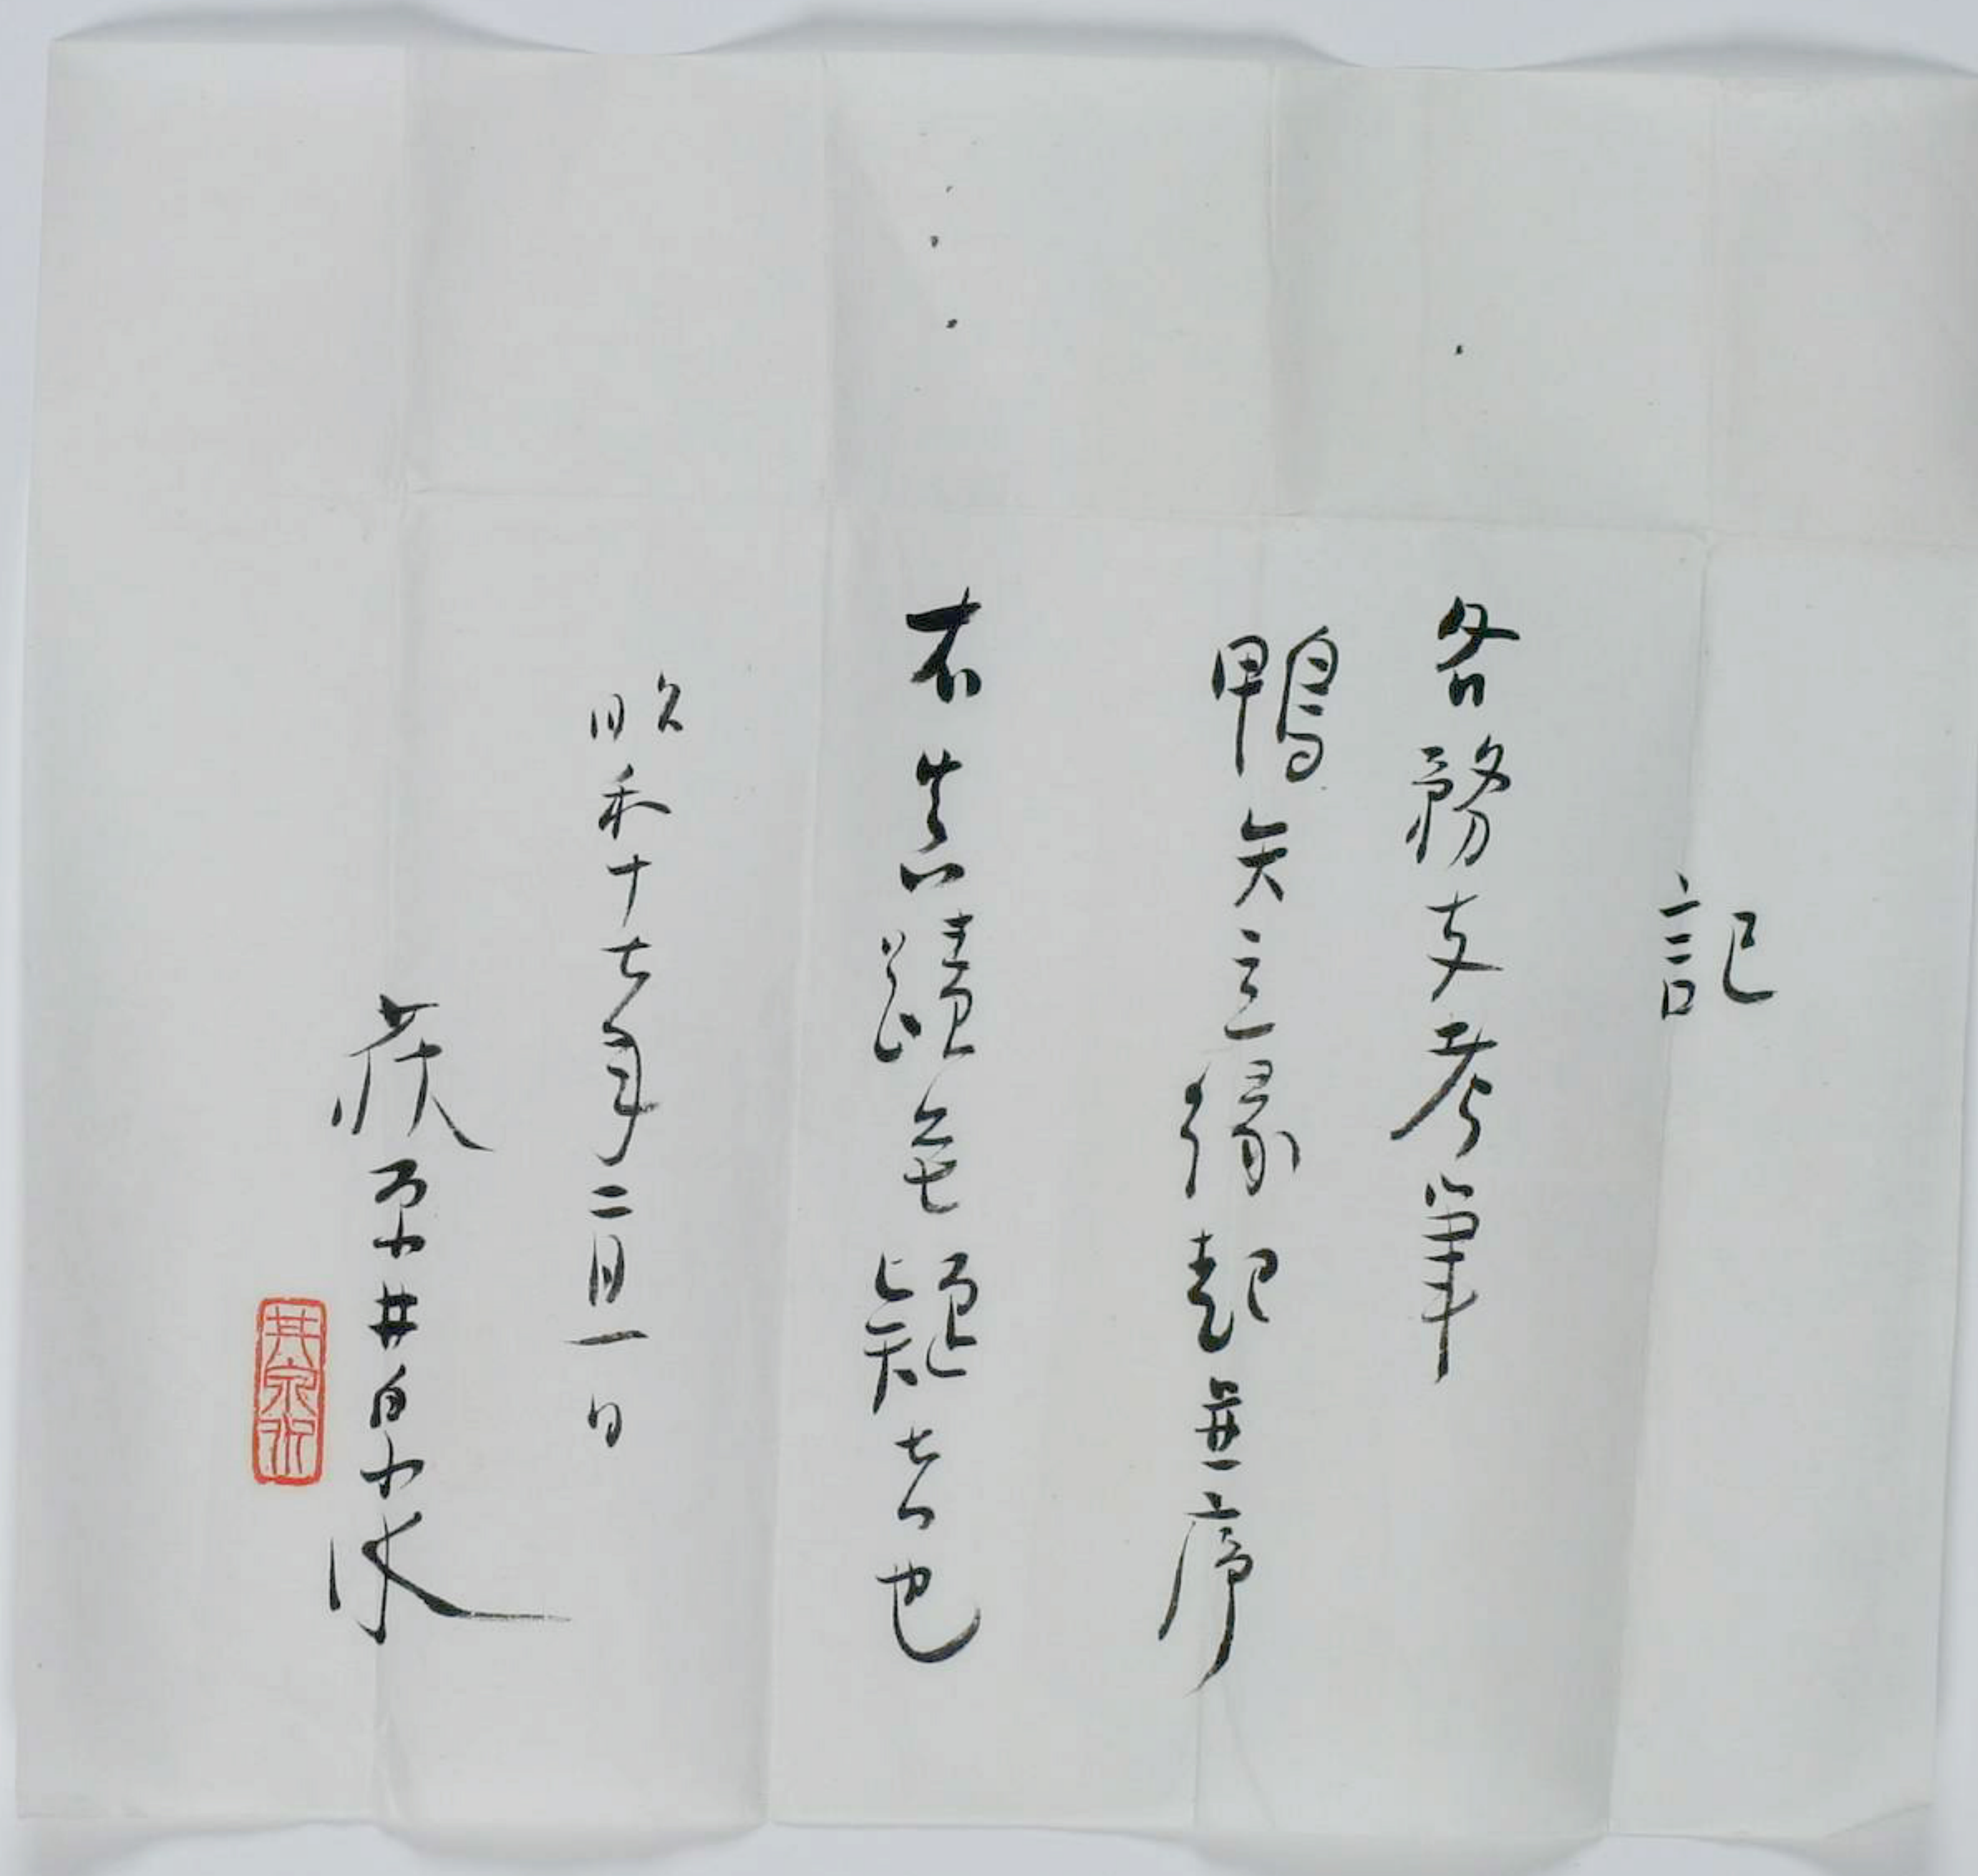 記
各務支考筆
鴨矢立縁起並序
右真蹟無疑者也
昭和十七年二月一日
荻原井泉水
井泉水